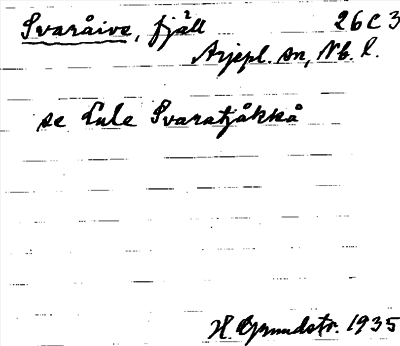 Svaråive, fjäll 26C3
Arjepl. sn, Nb. l.
se Lule Svaratjåkkå
H. Grundstr. 1935